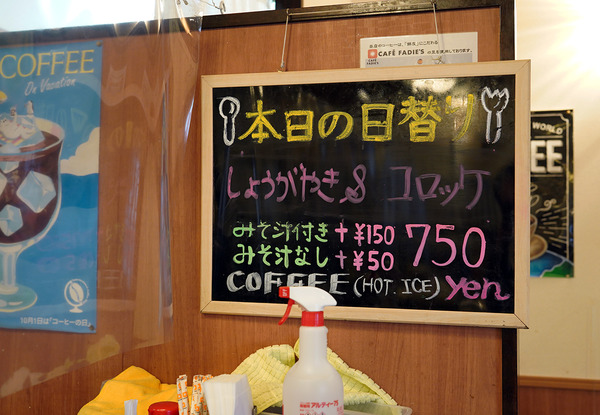 COFFEE
On Vacation
10月1日は「コーヒーの日」
CAFÉ FADIE'S
本日の日替り
しょうがやき& コロッケ
みそ汁付き +¥150 750
みそ汁なし +¥50
COFFEE (HOT. ICE) yen
WORLD
アルティーア